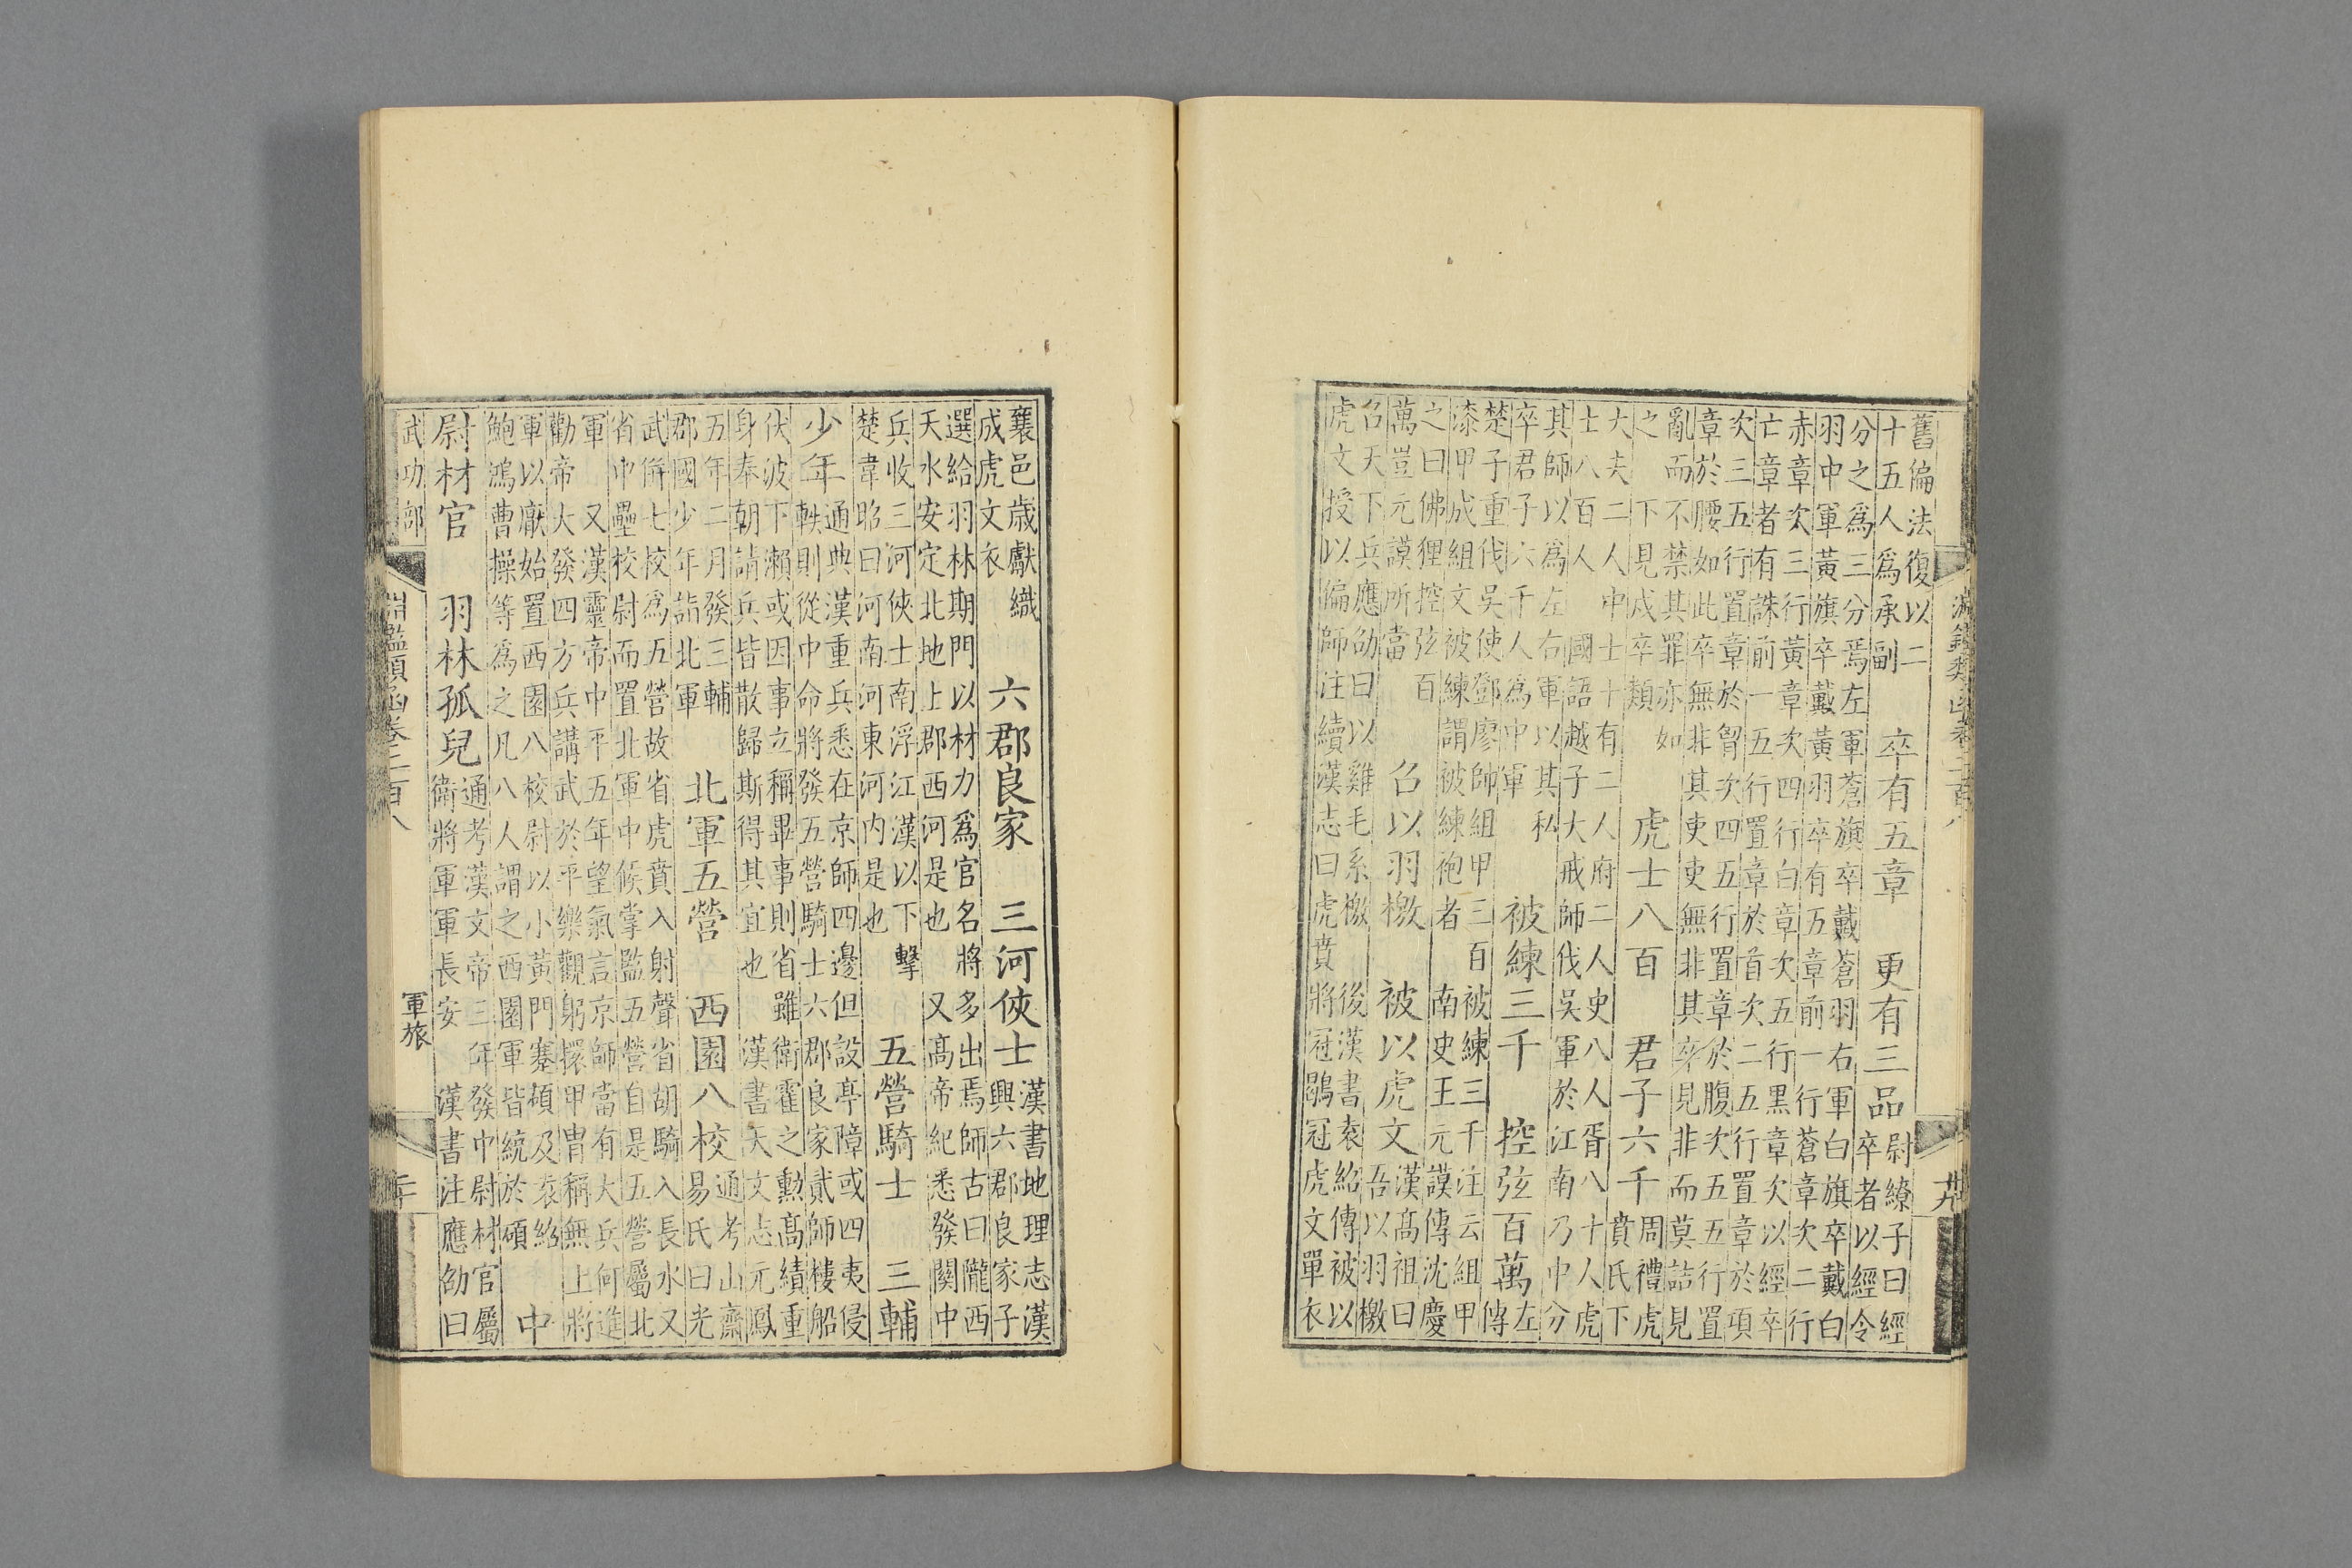 淵鑑類函卷二百八
十九
舊偏法復以二
十五人爲承副
卒有五章　更有三品
尉繚子曰經
卒者以經令
分之爲三分焉左軍蒼旗卒戴蒼羽右軍白旗卒戴白
羽中軍黃旗卒戴黃羽卒有五章前一行蒼章次二行
赤章次三行黃章次四行白章次五行黑章次以經卒
亡章者有誅前一五行置章於首次二五行置章於項
次三五行置章於胷次四五行置章於腹次五五行置
章於腰如此卒無非其吏吏無非其卒見非而莫詰見
亂而不禁其罪亦如
之　下見成卒類
虎士八百　君子六千
周禮虎
賁氏下
大夫二人中士十有二人府二人史八人胥八十人虎
士八百人　國語越子大戒師伐吳軍於江南乃中分
其師以爲左右軍以其私
卒君子六千人爲中軍
被練三千　控弦百萬
左
傳
楚子重伐吳使鄧廖帥組甲三百被練三千注云組甲
漆甲成組文被練謂被練袍者　南史王元謨傳沈慶
之曰佛狸控弦百
萬豈元謨所當
召以羽檄　被以虎文
漢高祖曰
吾以羽檄
召天下兵應劭曰以雞毛系檄　後漢書袁紹傳被以
虎文授以偏師注續漢志曰虎賁將冠鶡冠虎文單衣
襄邑歲獻織
成虎文衣
六郡良家　三河俠士
漢書地理志漢
興六郡良家子
選給羽林期門以材力爲官名將多出焉師古曰隴西
天水安定北地上郡西河是也　又高帝紀悉發關中
兵收三河俠士南浮江漢以下擊
楚韋昭曰河南河東河内是也
五營騎士　三輔
少年
通典漢重兵悉在京師四邊但設亭障或四夷侵
軼則從中命將發五營騎士六郡良家貳師樓船
伏波下瀨或因事立稱畢事則省雖衛霍之勳高績重
身奉朝請兵皆散歸斯得其宜也　漢書天文志元鳳
五年二月發三輔
郡國少年詣北軍
北軍五營　西園八校
通考山齋
易氏曰光
武併七校爲五營故省虎賁入射聲省胡騎入長水又
省中壘校尉而置北軍中候掌監五營自是五營屬北
軍　又漢靈帝中平五年望氣言京師當有大兵何進
勸帝大發四方兵講武於平樂觀躬擐甲胄稱無上將
軍以厭始置西園八校尉以小黃門蹇碩及袁紹
鮑鴻曹操等爲之凡八人謂之西園軍皆統於碩
中
尉材官　羽林孤兒
通考漢文帝三年發中尉材官屬
衛將軍軍長安　漢書注應劭曰
武功部
淵鑑類函卷二百八
軍旅
二十